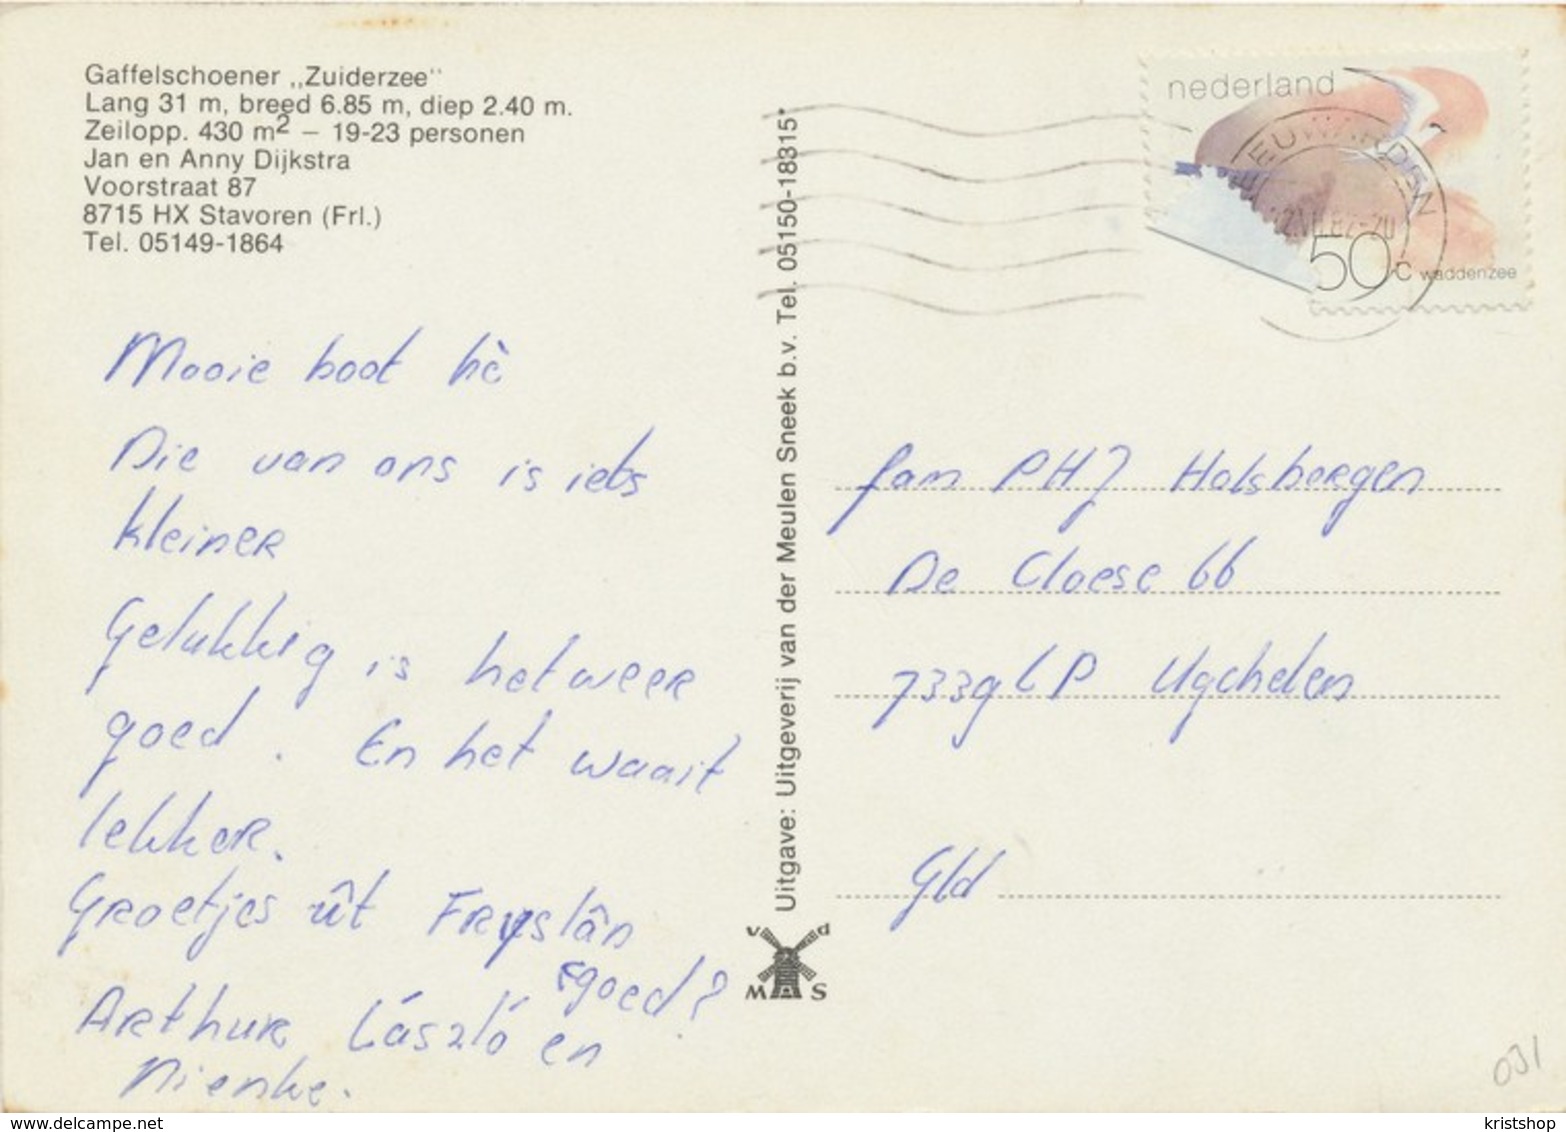 Gaffelschoener „Zuiderzee"
Lang 31 m, breed 6.85 m, diep 2.40 m.
Zeilopp. 430 m² – 19-23 personen
Jan en Anny Dijkstra
Voorstraat 87
8715 HX Stavoren (Frl.)
Tel. 05149-1864
Mooie boot hè
Die van ons is iets
kleiner
Gelukkig is het weer
goed. En het waait
lekker.
Groetjes út Fryslân
goed?
Arthur László en
Nienke.
Uitgave: Uitgeverij van der Meulen Sneek b.v. Tel. 05150-18315*
v d
M S
nederland
50c waddenzee
fam PHJ Holsbergen
De Cloese 66
7339 CP Ugchelen
Gld
031
delcampe.net
kristshop